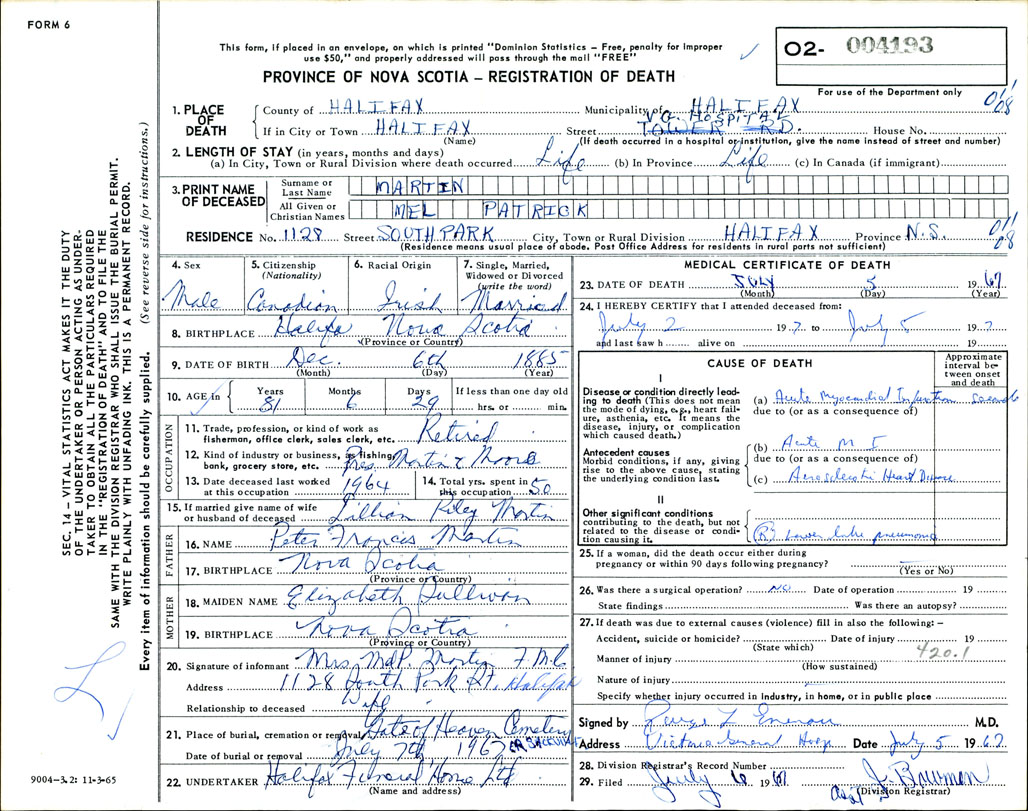 FORM 6
This form, if placed in an envelope, on which is printed "Dominion Statistics – Free, penalty for improper
use $50," and properly addressed will pass through the mail "FREE"
O2- 004193
For use of the Department only
PROVINCE OF NOVA SCOTIA – REGISTRATION OF DEATH
1. PLACE OF DEATH
County of HALIFAX Municipality of HALIFAX
V.G. HOSPITAL
If in City or Town HALIFAX Street TOWER RD. House No.
(Name) (If death occurred in a hospital or institution, give the name instead of street and number)
2. LENGTH OF STAY (in years, months and days)
(a) In City, Town or Rural Division where death occurred Life (b) In Province Life (c) In Canada (if immigrant)
3. PRINT NAME OF DECEASED
Surname or Last Name MARTIN
All Given or Christian Names MEL PATRICK
RESIDENCE No. 1128 Street SOUTH PARK City, Town or Rural Division HALIFAX Province N.S.
(Residence means usual place of abode. Post Office Address for residents in rural parts not sufficient)
01/08
01/08
4. Sex Male
5. Citizenship (Nationality) Canadian
6. Racial Origin Irish
7. Single, Married, Widowed or Divorced (write the word) Married
8. BIRTHPLACE Halifax Nova Scotia
(Province or Country)
9. DATE OF BIRTH Dec. 6th 1885
(Month) (Day) (Year)
10. AGE in Years 81 Months 6 Days 29 If less than one day old
hrs. or min.
OCCUPATION
11. Trade, profession, or kind of work as
fisherman, office clerk, sales clerk, etc. Retired
12. Kind of industry or business, as fishing,
bank, grocery store, etc. Pres. Martin & Moore
13. Date deceased last worked
at this occupation 1964
14. Total yrs. spent in
this occupation 50
15. If married give name of wife
or husband of deceased Lillian Riley Martin
FATHER
16. NAME Peter Francis Martin
17. BIRTHPLACE Nova Scotia
(Province or Country)
MOTHER
18. MAIDEN NAME Elizabeth Sullivan
19. BIRTHPLACE Nova Scotia
(Province or Country)
20. Signature of informant Mrs. M.P. Martin
Address 1128 South Park St. Halifax
Relationship to deceased Wife
21. Place of burial, cremation or removal Gate of Heaven Cemetery
Date of burial or removal July 7th 1967
22. UNDERTAKER Halifax Funeral Home Ltd
(Name and address)
MEDICAL CERTIFICATE OF DEATH
23. DATE OF DEATH JULY 5 1967
(Month) (Day) (Year)
24. I HEREBY CERTIFY that I attended deceased from:
July 2 197 to July 5 197
and last saw h alive on 19
CAUSE OF DEATH
Approximate interval between onset and death
I
Disease or condition directly leading to death (This does not mean
the mode of dying, e.g., heart failure, asthenia, etc. It means the
disease, injury, or complication
which caused death.)
(a) Acute Myocardial Infarction
due to (or as a consequence of)
Antecedent causes
Morbid conditions, if any, giving
rise to the above cause, stating
the underlying condition last.
(b) Acute M I
due to (or as a consequence of)
(c) Heart Disease
II
Other significant conditions
contributing to the death, but not
related to the disease or condition causing it.
(R) Lower lobe pneumonia
25. If a woman, did the death occur either during
pregnancy or within 90 days following pregnancy?
(Yes or No)
26. Was there a surgical operation? NO Date of operation 19
State findings Was there an autopsy?
27. If death was due to external causes (violence) fill in also the following: –
Accident, suicide or homicide? Date of injury 19
(State which) 420.1
Manner of injury
(How sustained)
Nature of injury
Specify whether injury occurred in industry, in home, or in public place
Signed by George L M.D.
Address Victoria General Hosp Date July 5 1967
28. Division Registrar's Record Number
29. Filed July 6 1967 J. Bowman
Asst (Division Registrar)
SEC. 14 – VITAL STATISTICS ACT MAKES IT THE DUTY
OF THE UNDERTAKER OR PERSON ACTING AS UNDER-
TAKER TO OBTAIN ALL THE PARTICULARS REQUIRED
IN THE "REGISTRATION OF DEATH" AND TO FILE THE
SAME WITH THE DIVISION REGISTRAR WHO SHALL ISSUE THE BURIAL PERMIT.
WRITE PLAINLY WITH UNFADING INK. THIS IS A PERMANENT RECORD.
Every item of information should be carefully supplied. (See reverse side for instructions.)
9004-3.2: 11-3-65